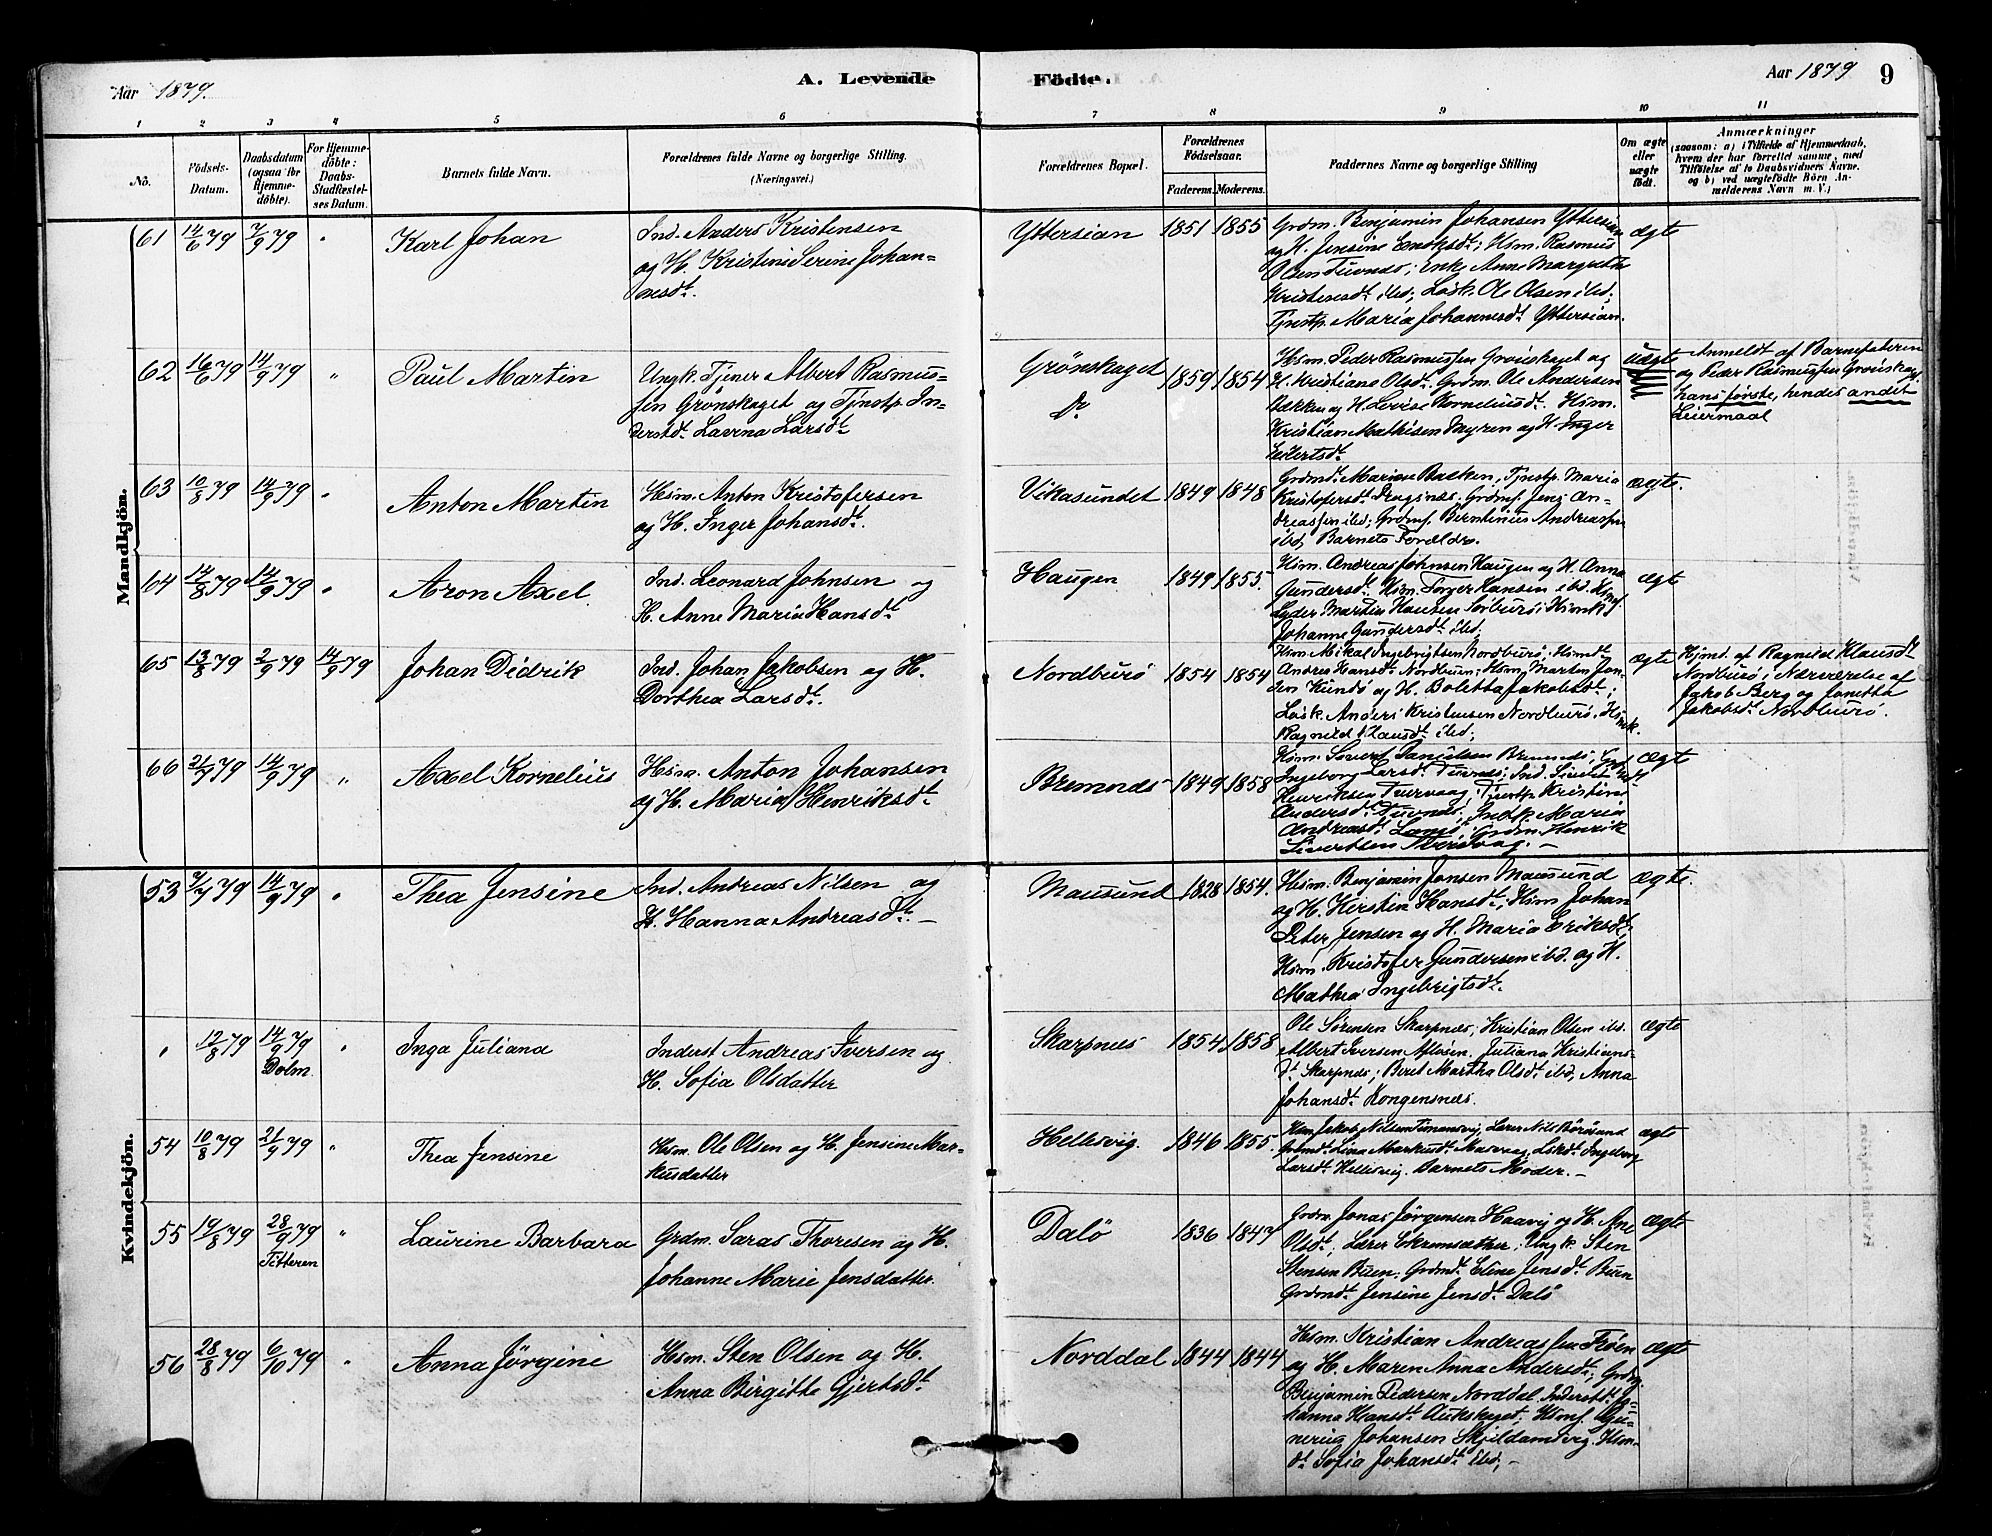 Aar 1879.
A. Levende
Födte.
Aar 1879
9
1 2 3 4 5 6 7 8 9 10 11
No.
Födsels-
Datum.
Daabsdatum
(ogsaa ibr
Hjemme-
döbte).
For Hjemme-
döbte:
Daabs-
Stadfæstel-
ses Datum.
Barnets fulde Navn.
Forældrenes fulde Navne og borgerlige Stilling.
(Næringsvei.)
Forældrenes Bopæl.
Forældrenes
Födselsaar.
Faderens.
Moderens.
Faddernes Navne og borgerlige Stilling
Om ægte
eller
uægte
födt.
Anmærkninger
(saasom: a) i Tilfælde af Hjemmedaab,
hvem der har forrettet samme, med
Tilföielse af to Daabsvidners Navne,
og b) ved uægtefödte Börn An-
melderens Navn m. V.)
Mandkjön.
61 14/6 79 7/9 79 "
Karl Johan
Ind. Anders Kristensen
og H. Kristine Serine Johan-
nesdt.
Yttersian 1851 1855
Grdm. Benjamin Johansen Yttersian
og H. Jensine Enoksdt; Hsm. Rasmus
Olsen Tuvnes; Enke Anne Margrethe
Kristensdt ibd; Løsk. Ole Olsen ibd;
Tjnstp. Maria Johannesdt Yttersian.
ægte
62 16/6 79 14/9 79 "
Paul Martin
Ungk. Tjener Albert Rasmus-
sen Grønskaget og Tjnstp. In-
derstdt. Lavina Larsdt
Grönskaget
Do.
1859 1854
Hsm. Peder Rasmussen Grønskaget og
H. Kristiane Olsdt. Grdm. Ole Andersen
Bækken og H. Lovise Korneliusdt. Hsm.
Kristian Mathisen og H. Inger
Eilertsdt
uægte
Anmeldt af Barnefaderen
og Peder Rasmussen Grønskaget
hans første, hendes andet
Leiermaal
63 10/8 79 14/9 79 "
Anton Martin
Hsm. Anton Kristofersen
og H. Inger Johansdt.
Vikasundet 1849 1848
Grdmdt. Marian Bakken, Tjnstp. Maria
Kristofersdt. Dragsnes. Grdmf. Jens An-
dreassen ibd; Grdmf. Berntinus Andreassen
ibd, Barnets Forældre.
ægte.
64 14/8 79 14/9 79 "
Aron Axel.
Ind. Leonard Johnsen og
H. Anne Maria Hansdt
Haugen 1849 1855.
Hsm. Andreas Johnsen Haugen og H. Anna
Gundersdt. Hsm. Torger Hansen ibd. Hsmf.
Lyder Martin Hansen Sörburö; Hsmk.
Johanne Gundersdt ibd;
ægte
65 13/8 79 2/9 79 14/9 79
Johan Didrik
Ind. Johan Jakobsen og H.
Dorthea Larsdt.
Nordburö 1854 1854
Hsm. Mikal Ingebrigtsen Nordburö. Hsmdt.
Andrea Hansdt Nordburö. Hsm. Martin Jen-
sen Kunsö og H. Boletta Jakobsdt;
Løsk. Anders Kristensen Nordburö. Hsmk.
Ragnild Klausdt ibd;
ægte
Hjmd. af Ragnild Klausdt
Nordburö i Nærværelse af
Jakob Berg og Janetta
Jakobsdt Nordburö.
66 21/7 79 14/9 79 "
Axel Kornelius
Hsm. Anton Johansen
og H. Maria Henriksdt
Bremnes 1849 1858
Hsm. Sivert Danielsen Bremnes; Grdmdt
Ingeborg Larsdt Tuvnes; Ind. Sivert
Henriksen; Tjnstp. Kristine
Andersdt Tuvnes; Indk. Maria
Andreasdt; Grdm. Henrik
Sivertsen. –
ægte
Kvindekjön.
53 7/7 79 14/9 79 "
Thea Jensine
Ind. Andreas Nilsen og
H. Hanna Andreasdt. –
Mausund 1828 1854.
Hsm. Benjamin Jensen Mausund
og H. Kerstina Hansdt; Hsm. Johan
Peter Jensen og H. Maria Eriksdt;
Hsm. Kristofer Gundersen ibd. og H.
Mathea Ingebrigtsdt.
ægte.
" 12/8 79 14/9 79 "
Dolm.
Inga Juliana
Inderst Andreas Iversen og
H. Sofia Olsdatter
Skarpnes 1854 1858
Ole Sörensen Skarpnes; Kristian Olsen ibd.
Albert Iversen Aflösen. Juliana Kristians-
dt. Skarpnes; Beret Martha Olsdt ibd, Anna
Johansdt. Kongensnes.
ægte
54 10/8 79 21/9 79 "
Thea Jensine
Hsm. Ole Olsen og H. Jensine Mar-
kusdatter
Hellesvig. 1846 1855.
Hsm. Jakob Nilsen, Lærer Nils Börösund
Grdmdt. Lina Markusdt., Lskdt. Ingeborg
Larsdt. Hellesvig. Barnets Moder. –
ægte
55 19/8 79 28/9 79 "
Titteren
Laurine Barbara
Grdm. Saras Thoresen og H.
Johanne Marie Jensdatter.
Dalö 1836 1847
Grdm. Jonas Jörgensen Haavig og H. Ane
Olsdt; Lærer Ekremsæther; Ungk. Sten
Stensen Buen; Grdmdt. Eline Jensdt. Buen
Grdmdt. Jensine Jensdt. Dalö
ægte
56 28/8 79 6/10 79 "
Anna Jörgine
Hsm. Sten Olsen og H.
Anna Birgitte Gjertsdt.
Norddal 1844 1844
Hsm. Kristian Andreassen Fröen
og H. Maren Anna Andersdt; Grdm.
Benjamin Pedersen Norddal. Inderstdt. Jo-
hanna Hansdt. Aukskaget; Hsmf. Gu-
nerius Johansen Skjeldamsvig. Hsm-
dt. Sofia Johansdt. ibd; –
ægte